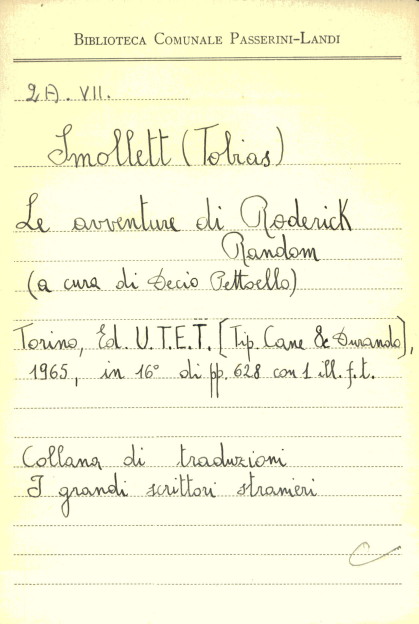 Biblioteca Comunale Passerini-Landi
2A. VII.
Smollett (Tobias)
Le avventure di Roderick
Random
(a cura di Decio Pettoello)
Torino, Ed. U.T.E.T. [Tip. Cane & Durando],
1965, in 16° di pp. 628 con 1 ill. f.t.
Collana di traduzioni
I grandi scrittori stranieri